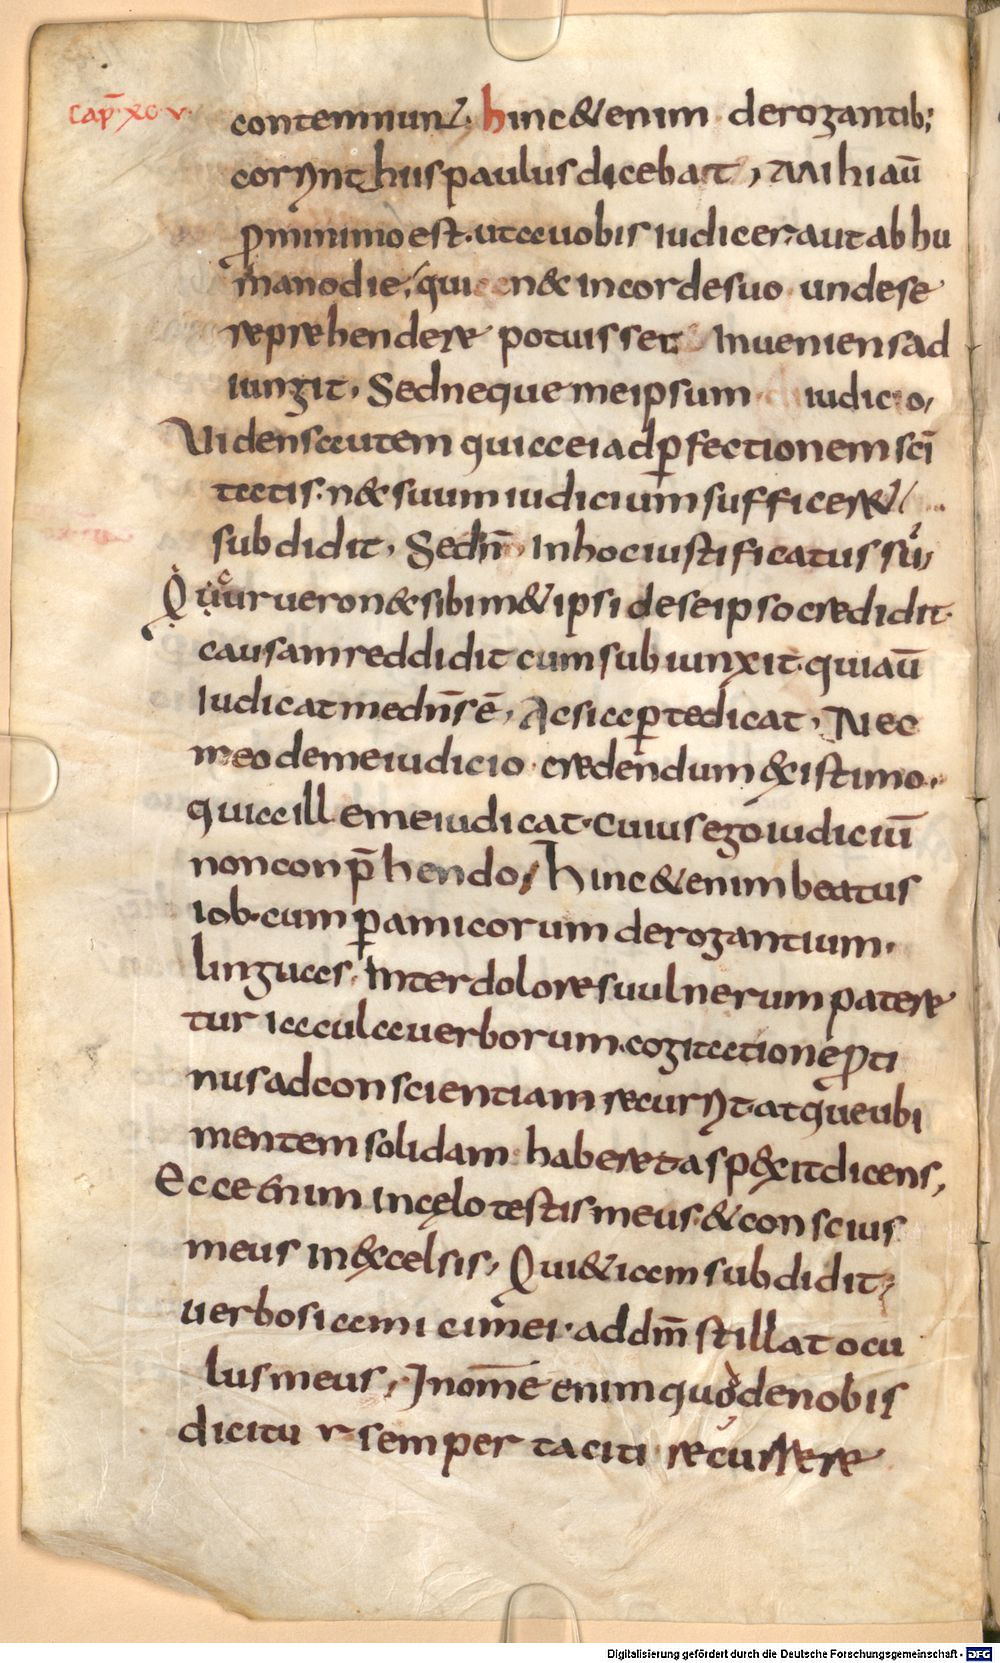 cap̄ · xc · v ·
contemnunt̃. hinc & enim derogantib;
corynthus paulus dicebat, Mihi aū
ꝓ minimo est. ut a uobis iudicer. aut ab hu
mano die. qui n& in corde suo unde se
repręhendere potuisset Inueniens ad
iungit. Sed neque me ipsum iudico,
Videns autem quia ei ad ꝑfectionem sci
tatis. n& suum iudicium sufficer&
subdidit. Sed ñ In hoc iustificatus sū,
Qur uero n& sibim& ipsi de se ipso credidit.
causam reddidit cum subiunxit. quia ū
Iudicat me dñs ē. Ac si aperte dicat. Nec
meo de me iudicio credendum &istimo.
quia ille me iudicat. cuius ego iudiciū
non conp̄hendo. Hinc & enim beatus
iob. cum ꝑ amicorum derogantium.
linguas. Inter dolores uulnerum patere
tur iacula uerborum. cogitatione ꝓti
nus ad conscientiam recuryt. atque ubi
mentem solidam haberet asp&it dicens,
Ecce enim in cęlo testis meus. & conscius
meus in &celsis. Qui &iam subdidit.
uerbosi ami ci mei. ad dm̄ stillat ocu
lus meus. In om̄e enim quod de nobis
dicitur semper taciti recurrere
Digitalisierung gefördert durch die Deutsche Forschungsgemeinschaft - DFG